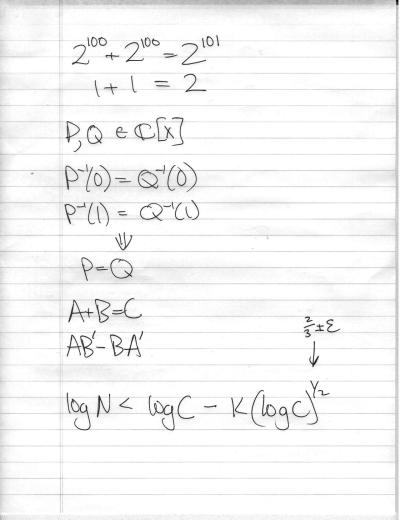 2^100 + 2^100 = 2^101
1 + 1 = 2
P, Q ∈ ℂ[x]
P^-1(0) = Q^-1(0)
P^-1(1) = Q^-1(1)
⇓
P = Q
A + B = C
AB' - BA'
2/3 ± ε
↓
log N < log C - K(log C)^1/2